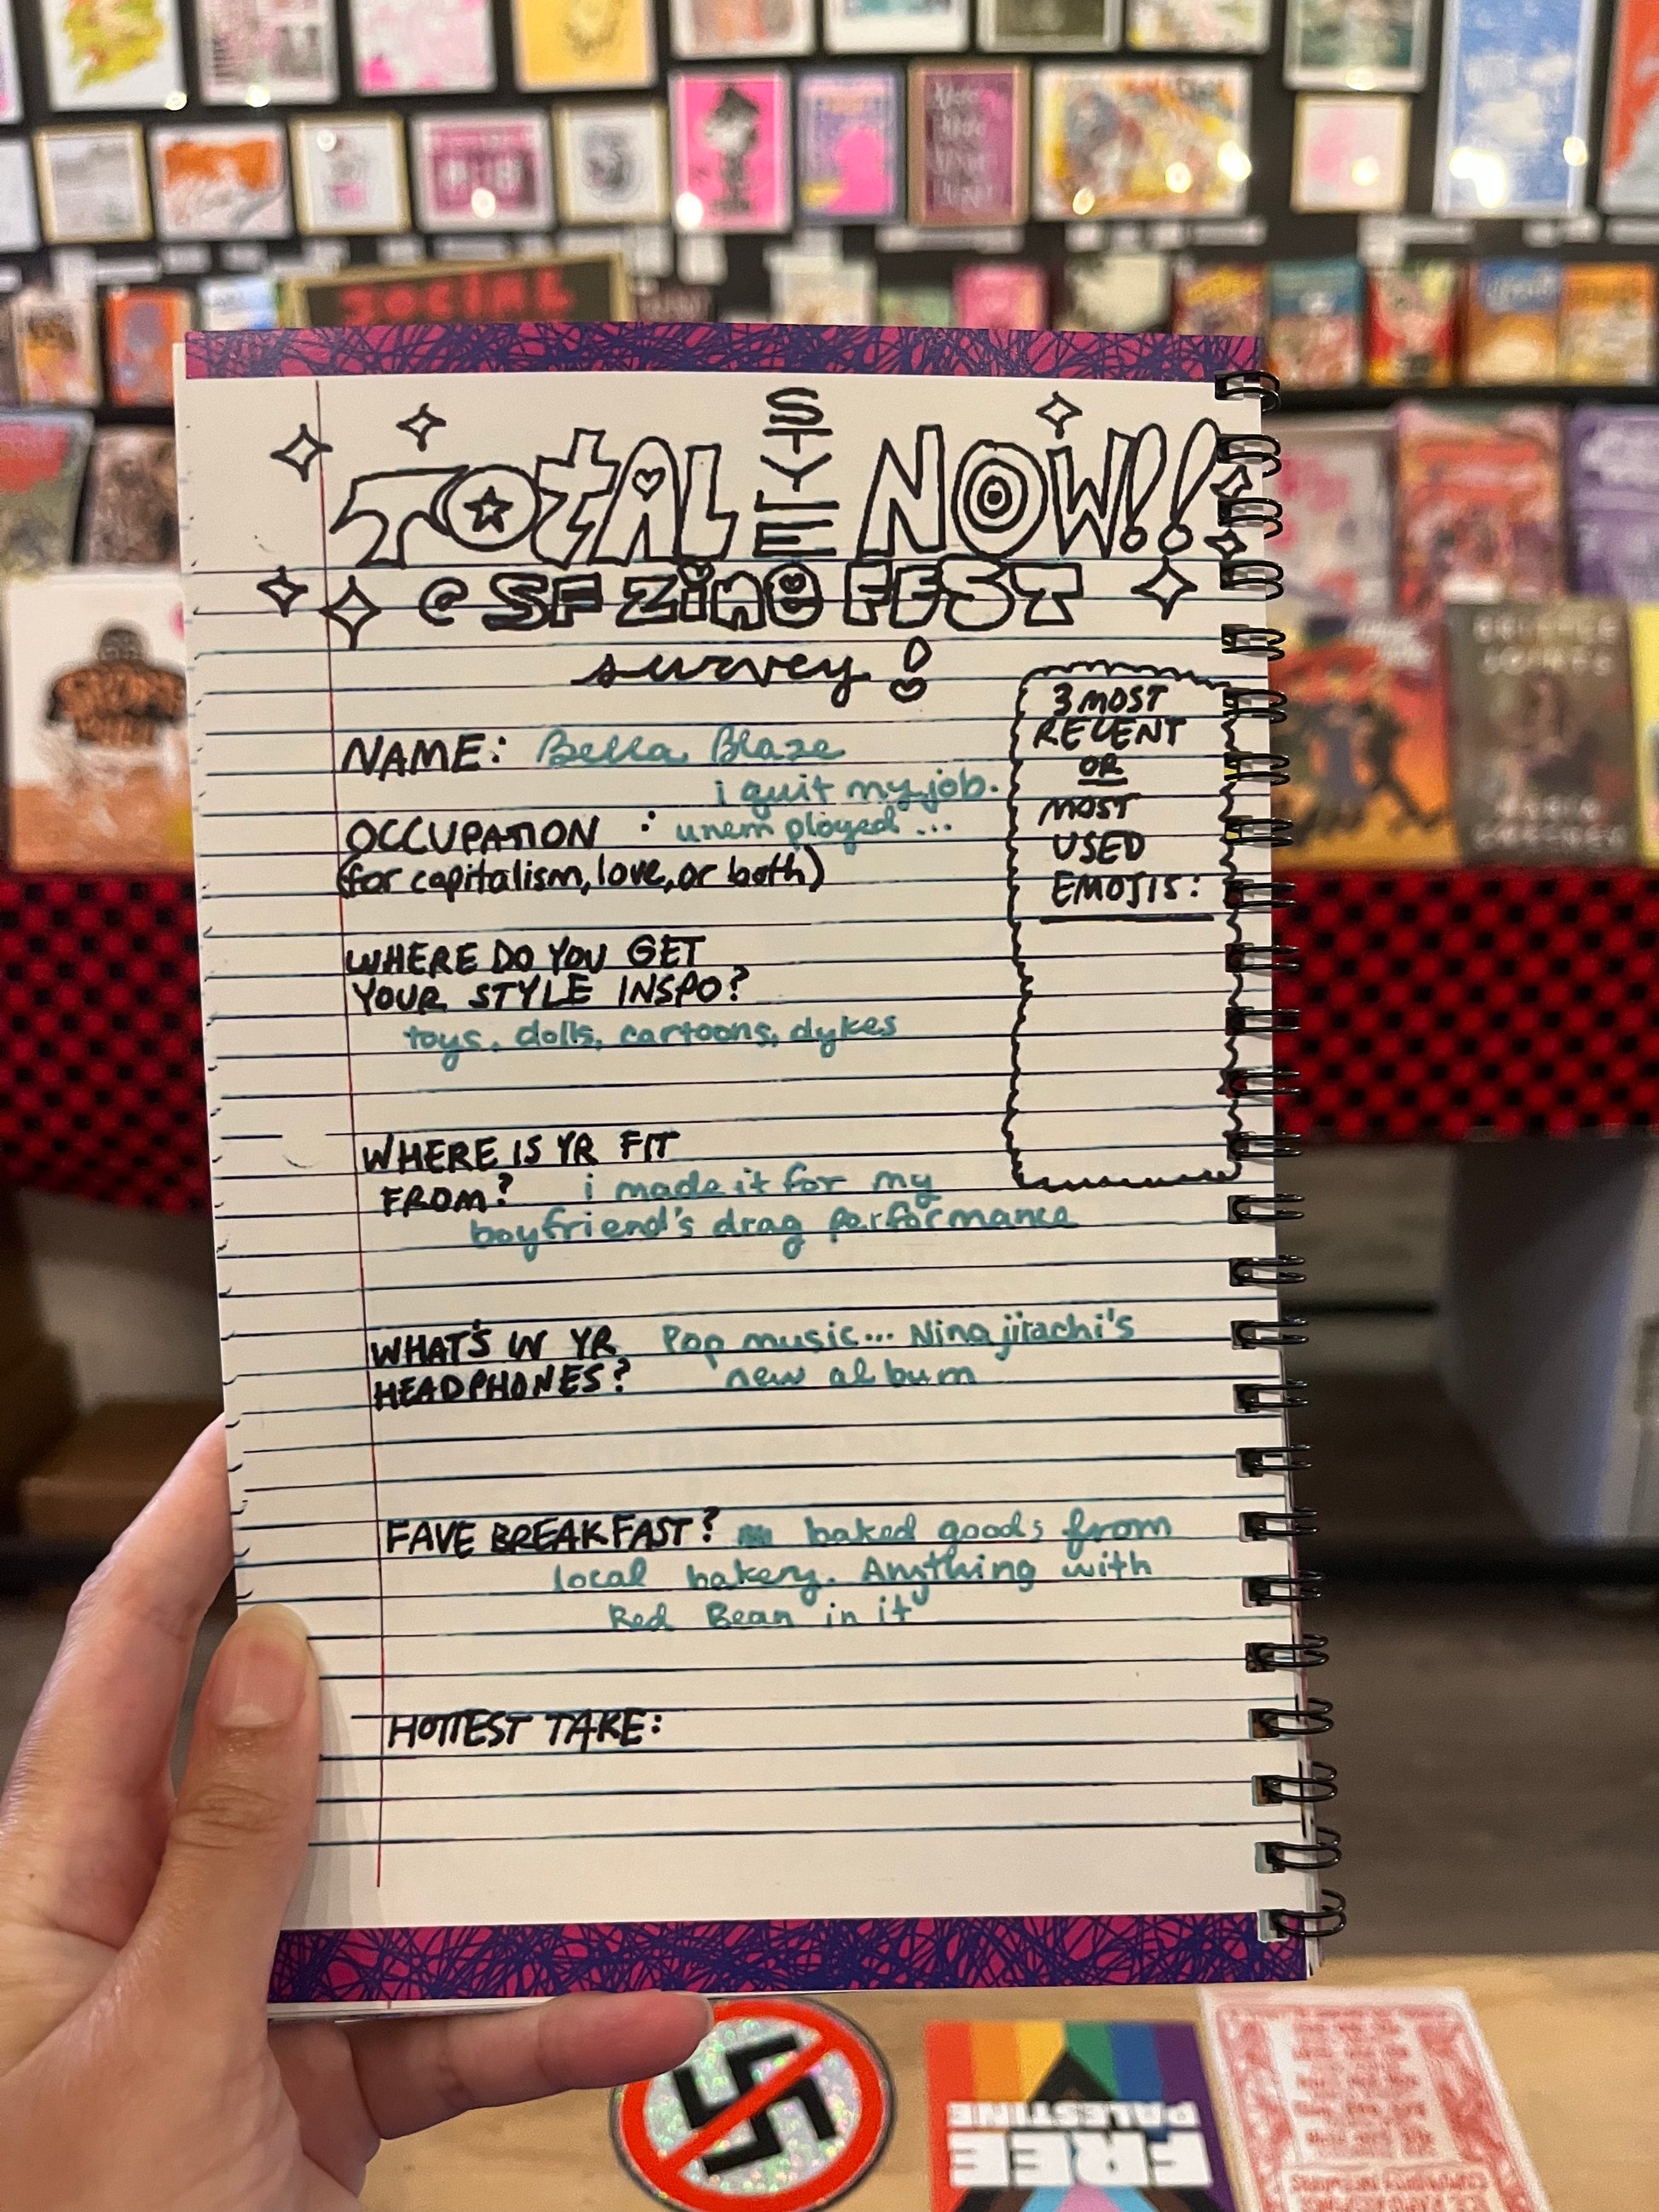 SOCIAL
TOTAL STYLE NOW!!
@ SF Zine FEST
survey!
3 MOST
RECENT
OR
MOST
USED
EMOJIS:
NAME: Bella Blaze
i quit my job.
OCCUPATION : unemployed...
(for capitalism, love, or both)
WHERE DO YOU GET
YOUR STYLE INSPO?
toys, dolls, cartoons, dykes
WHERE IS YR FIT
FROM? i made it for my
boyfriend's drag performance
WHAT'S IN YR Pop music... Ninajirachi's
HEADPHONES? new album
FAVE BREAKFAST? baked goods from
local bakery. Anything with
Red Bean in it
HOTTEST TAKE:
FREE
PALESTINE